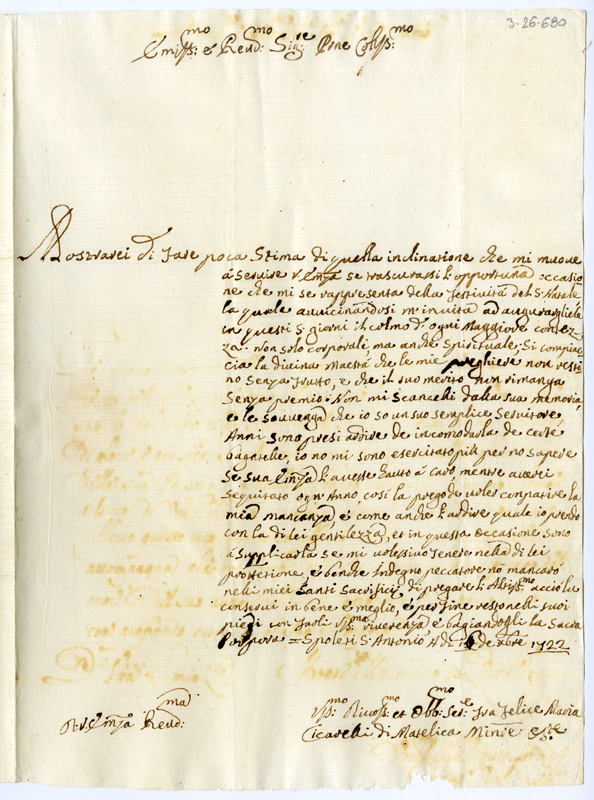 3-26-680
Emiss:mo e Reud:mo Sig:re Pne Colss:mo
Mostrarei di fare poca stima di quella inclinatione che mi muove
á seruire V. Emza se trascurassi l'opportuna occasio
ne che mi se rappresenta della festiuitá del S. Natale
la quale auuicinandosi m'inuita ad augurargliele
in questi S. giorni il colmo d'ogni Maggiore contez
za non solo corporali, ma anche spirituale, Si compiac
cia la diuina Maestá che le mie preghiere non resti
no senza frutto, e che il suo merito non rimanga
senza premio. Non mi scancelli dalla sua memoria,
e le souuenga che io so un suo semplice seruitore,
Anni sono presi ardire de incomodarla de certe
bagatelle, io no mi sono esercitato piú per no sapere
se sua Emza l'auesse hauto á caro, mentre auerei
seguitato ogn'Anno, cosí la prego de uoler conpatire la
mia mancanza, e come anche l'ardire quale io prendo
con la di lei gentilezza, et in questa occasione sono
á supplicarla se mi uolessiuo tenere nella di lei
protterione, e benche Indegno peccatore no mancaró
nelli miei Santi Sacrificij, di pregare l'Altiss:mo acció la
conserui in bene e meglio, e per fine resto nelli suoi
piedi con farli riuerenza e bagiandogli la Sacra
Porpora = Spoleti S. Antonio A di 16 de Xbre 1722
Di V. Emza Reud:ma
Riuer:mo et Obb:mo Ser:e fra Felice Maria
Cicarelli di Matelica Min:re